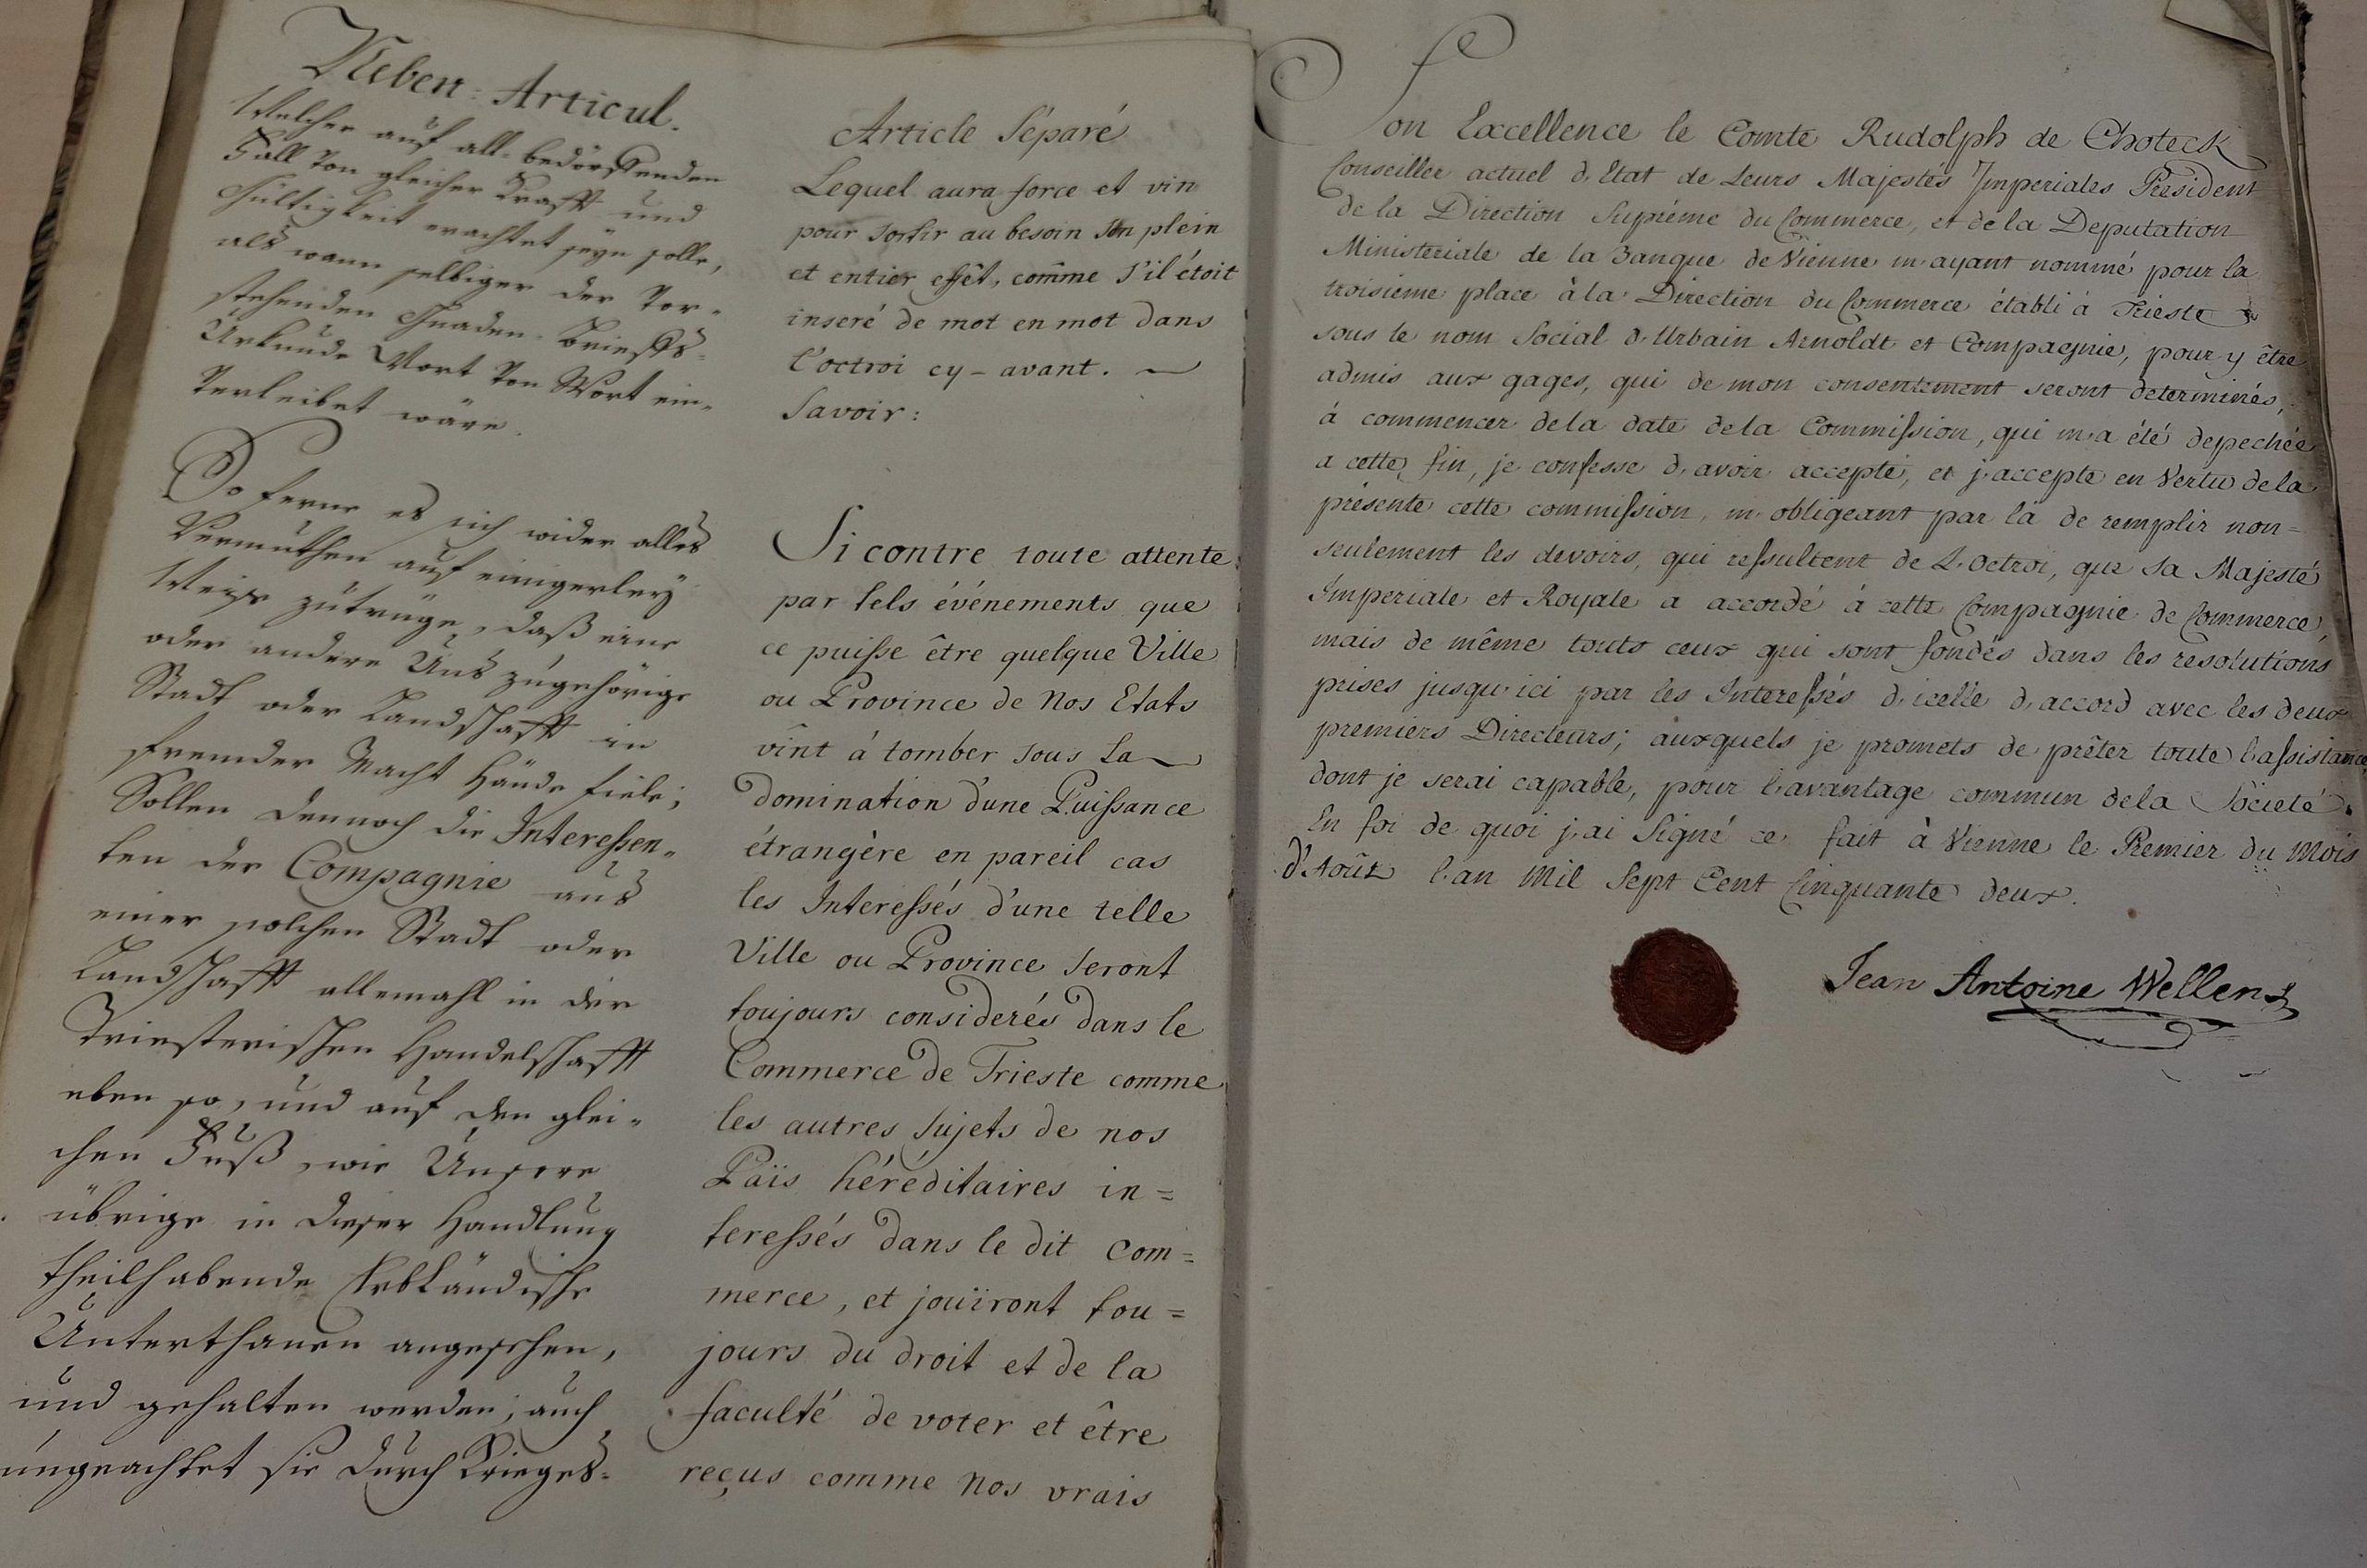 Neben-Articul.
Welcher auf all-bedörffenden
Fall Von gleicher Krafft und
Gültigkeit erachtet seyn solle,
als wann selbiger der Vor-
stehenden Gnaden-Brieffs-
Urkunde Wort Von Wort ein-
Verleibet wäre.
So ferne es sich wider alles
Vermuthen auf einigerley
Weise zutrüge, daß eine
oder andere Uns zugehörige
Stadt oder Landschafft in
fremder Macht Hände fiele;
Sollen dennoch die Interessen-
ten der Compagnie aus
einer solchen Stadt oder
Landschafft allemahl in der
Triesterischen Handelschafft
eben so, und auf den glei-
chen Fuß, wie Unsere
übrige in dieser Handlung
theilhabende Erbländische
Unterthanen angesehen,
und gehalten werden; auch
ungeachtet sie durch Krieges-
Article Séparé
Lequel aura force et vin
pour sortir au besoin son plein
et entier effêt, com̃e s'il étoit
inseré de mot en mot dans
l'octroi cy-avant. —
Savoir:
Si contre toute attente
par tels événements que
ce puisse être quelque Ville
ou Province de Nos Etats
vînt à tomber sous la
domination d'une Puissance
étrangère en pareil cas
les Interessés d'une telle
Ville ou Province seront
toujours considerés dans le
Commerce de Trieste comme
les autres Sujets de nos
Païs héréditaires in=
teressés dans le dit com=
merce, et jouïront tou=
jours du droit et de la
faculté de voter et être
reçus comme nos vrais
Son Excellence le Comte Rudolph de Choteck
Conseiller actuel d'Etat de Leurs Majestés Imperiales President
de la Direction Supréme du Commerce, et de la Deputation
Ministeriale de la Banque de Vienne m'ayant nommé pour la
troisieme place à la Direction du Commerce établi à Trieste
sous le nom Social d'Urbain Arnoldt et Compagnie, pour y être
admis aux gages, qui de mon consentement seront determinés,
à commencer de la date de la Commission, qui m'a été depechée
a cette fin, je confesse d'avoir accepté, et j'accepte en Vertu de la
présente cette commission, m'obligeant par là de remplir non=
seulement les devoirs, qui ressultent de L'Octroi, que Sa Majesté
Imperiale et Royale a accordé à cette Compagnie de Commerce,
mais de même touts ceux qui sont fondés dans les resolutions
prises jusqu'ici par les Interessés d'icelle d'accord avec les deux
premiers Directeurs; auxquels je promets de prêter toute l'assistance,
dont je serai capable, pour l'avantage commun de la Societé.
En foi de quoi j'ai Signé ce. fait à Vienne le Premier du Mois
d'Août l'an Mil Sept Cent Cinquante deux.
Jean Antoine Wellens